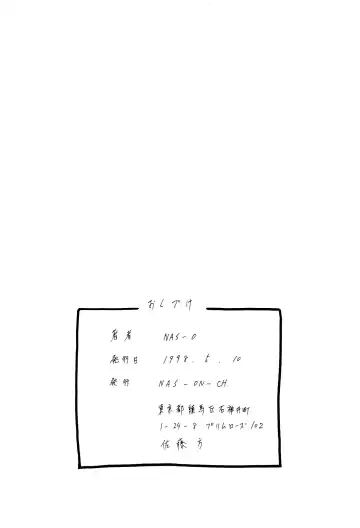 おしづけ
著者 NAS-O
発行日 1998. 5. 10
発行 NAS-ON-CH
東京都練馬区石神井町
1-24-8 プリムローズ102
佐藤方